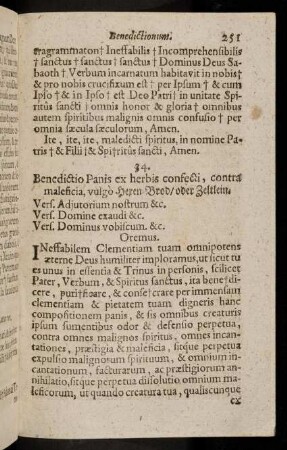 Benedictionum. 251
tragrammaton† Ineffabilis † Incomprehensibilis
† sanctus † sanctus † sanctus † Dominus Deus Sa-
baoth †. Verbum incarnatum habitavit in nobis†
& pro nobis crucifixum est † per Ipsum † & cum
Ipso † & in Ipso † est Deo Patri† in unitate Spi-
ritûs sancti † omnis honor & gloria † omnibus
autem spiritibus malignis omnis confusio † per
omnia sæcula sæculorum, Amen.
Ite, ite, ite, maledicti spiritus, in nomine Pa-
tris † & Filii †& Spi†ritûs sancti, Amen.
34.
Benedictio Panis ex herbis confecti, contra
maleficia, vulgò Hexen-Brod/ oder Zeltlein.
Vers. Adjutorium nostrum &c.
Vers. Domine exaudi &c.
Vers. Dominus vobiscum. &c.
Oremus.
INeffabilem Clementiam tuam omnipotens
æterne Deus humiliter imploramus, ut sicut tu
es unus in essentia & Trinus in personis, scilicet
Pater, Verbum, & Spiritus sanctus, ita bene†di-
cere, puri†ficare, & conse†crare per immensam
clementiam & pietatem tuam digneris hanc
compositionem panis, & sis omnibus creaturis
ipsum sumentibus odor & defensio perpetua,
contra omnes malignos spiritus, omnes incan-
tationes, præstigia & maleficia, sitque perpetua
expulsio malignorum spirituum, & omnium in-
cantationum, facturarum, ac præstigiorum an-
nihilatio, sitque perpetua dissolutio omnium ma-
leficorum, ut quando creatura tua, qualiscunque
ex